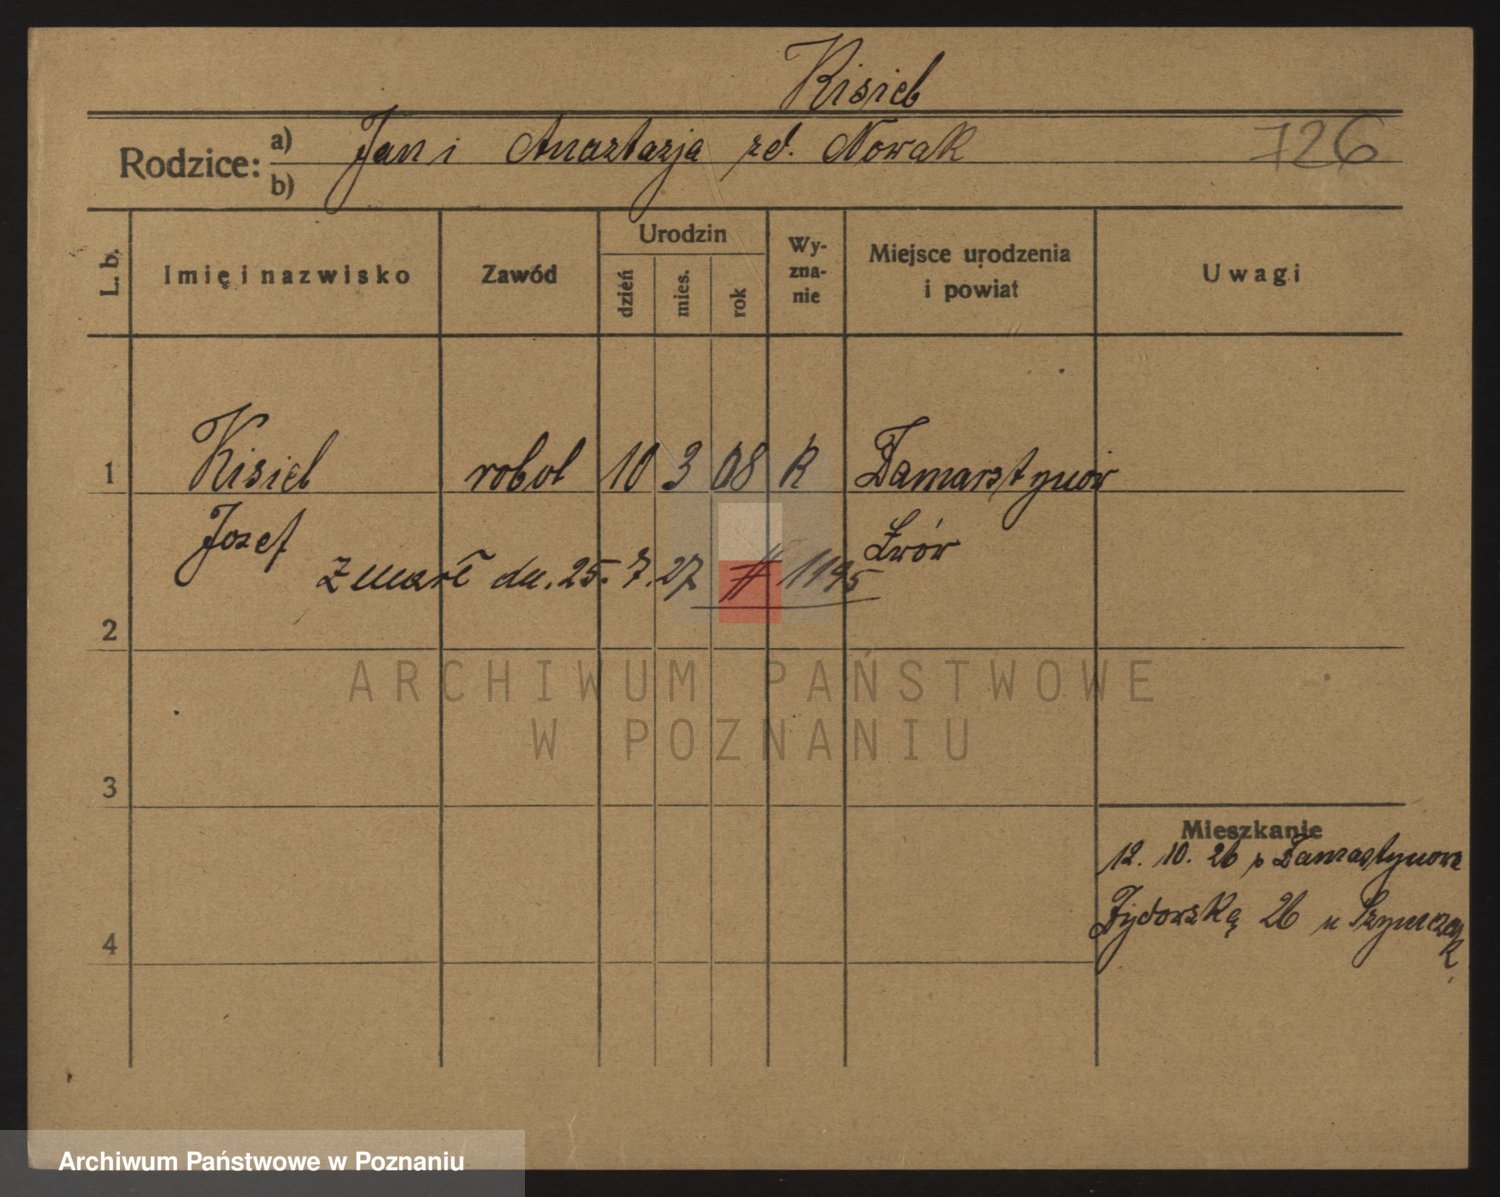 Kisiel
Rodzice: a) Jan i Anastazja zd. Nowak 726
b)
L. b. Imię i nazwisko Zawód Urodzin dzień mies. rok Wyznanie Miejsce urodzenia i powiat Uwagi
1 Kisiel robot 10 3 08 k Zamarstynów
Jozef Lwów
Zmarł dn. 25. 7. 27 # 1195
2
ARCHIWUM PAŃSTWOWE
W POZNANIU
3
Mieszkanie
12. 10. 26 z Zamarstynow
4 26 u Szymczak
Archiwum Państwowe w Poznaniu